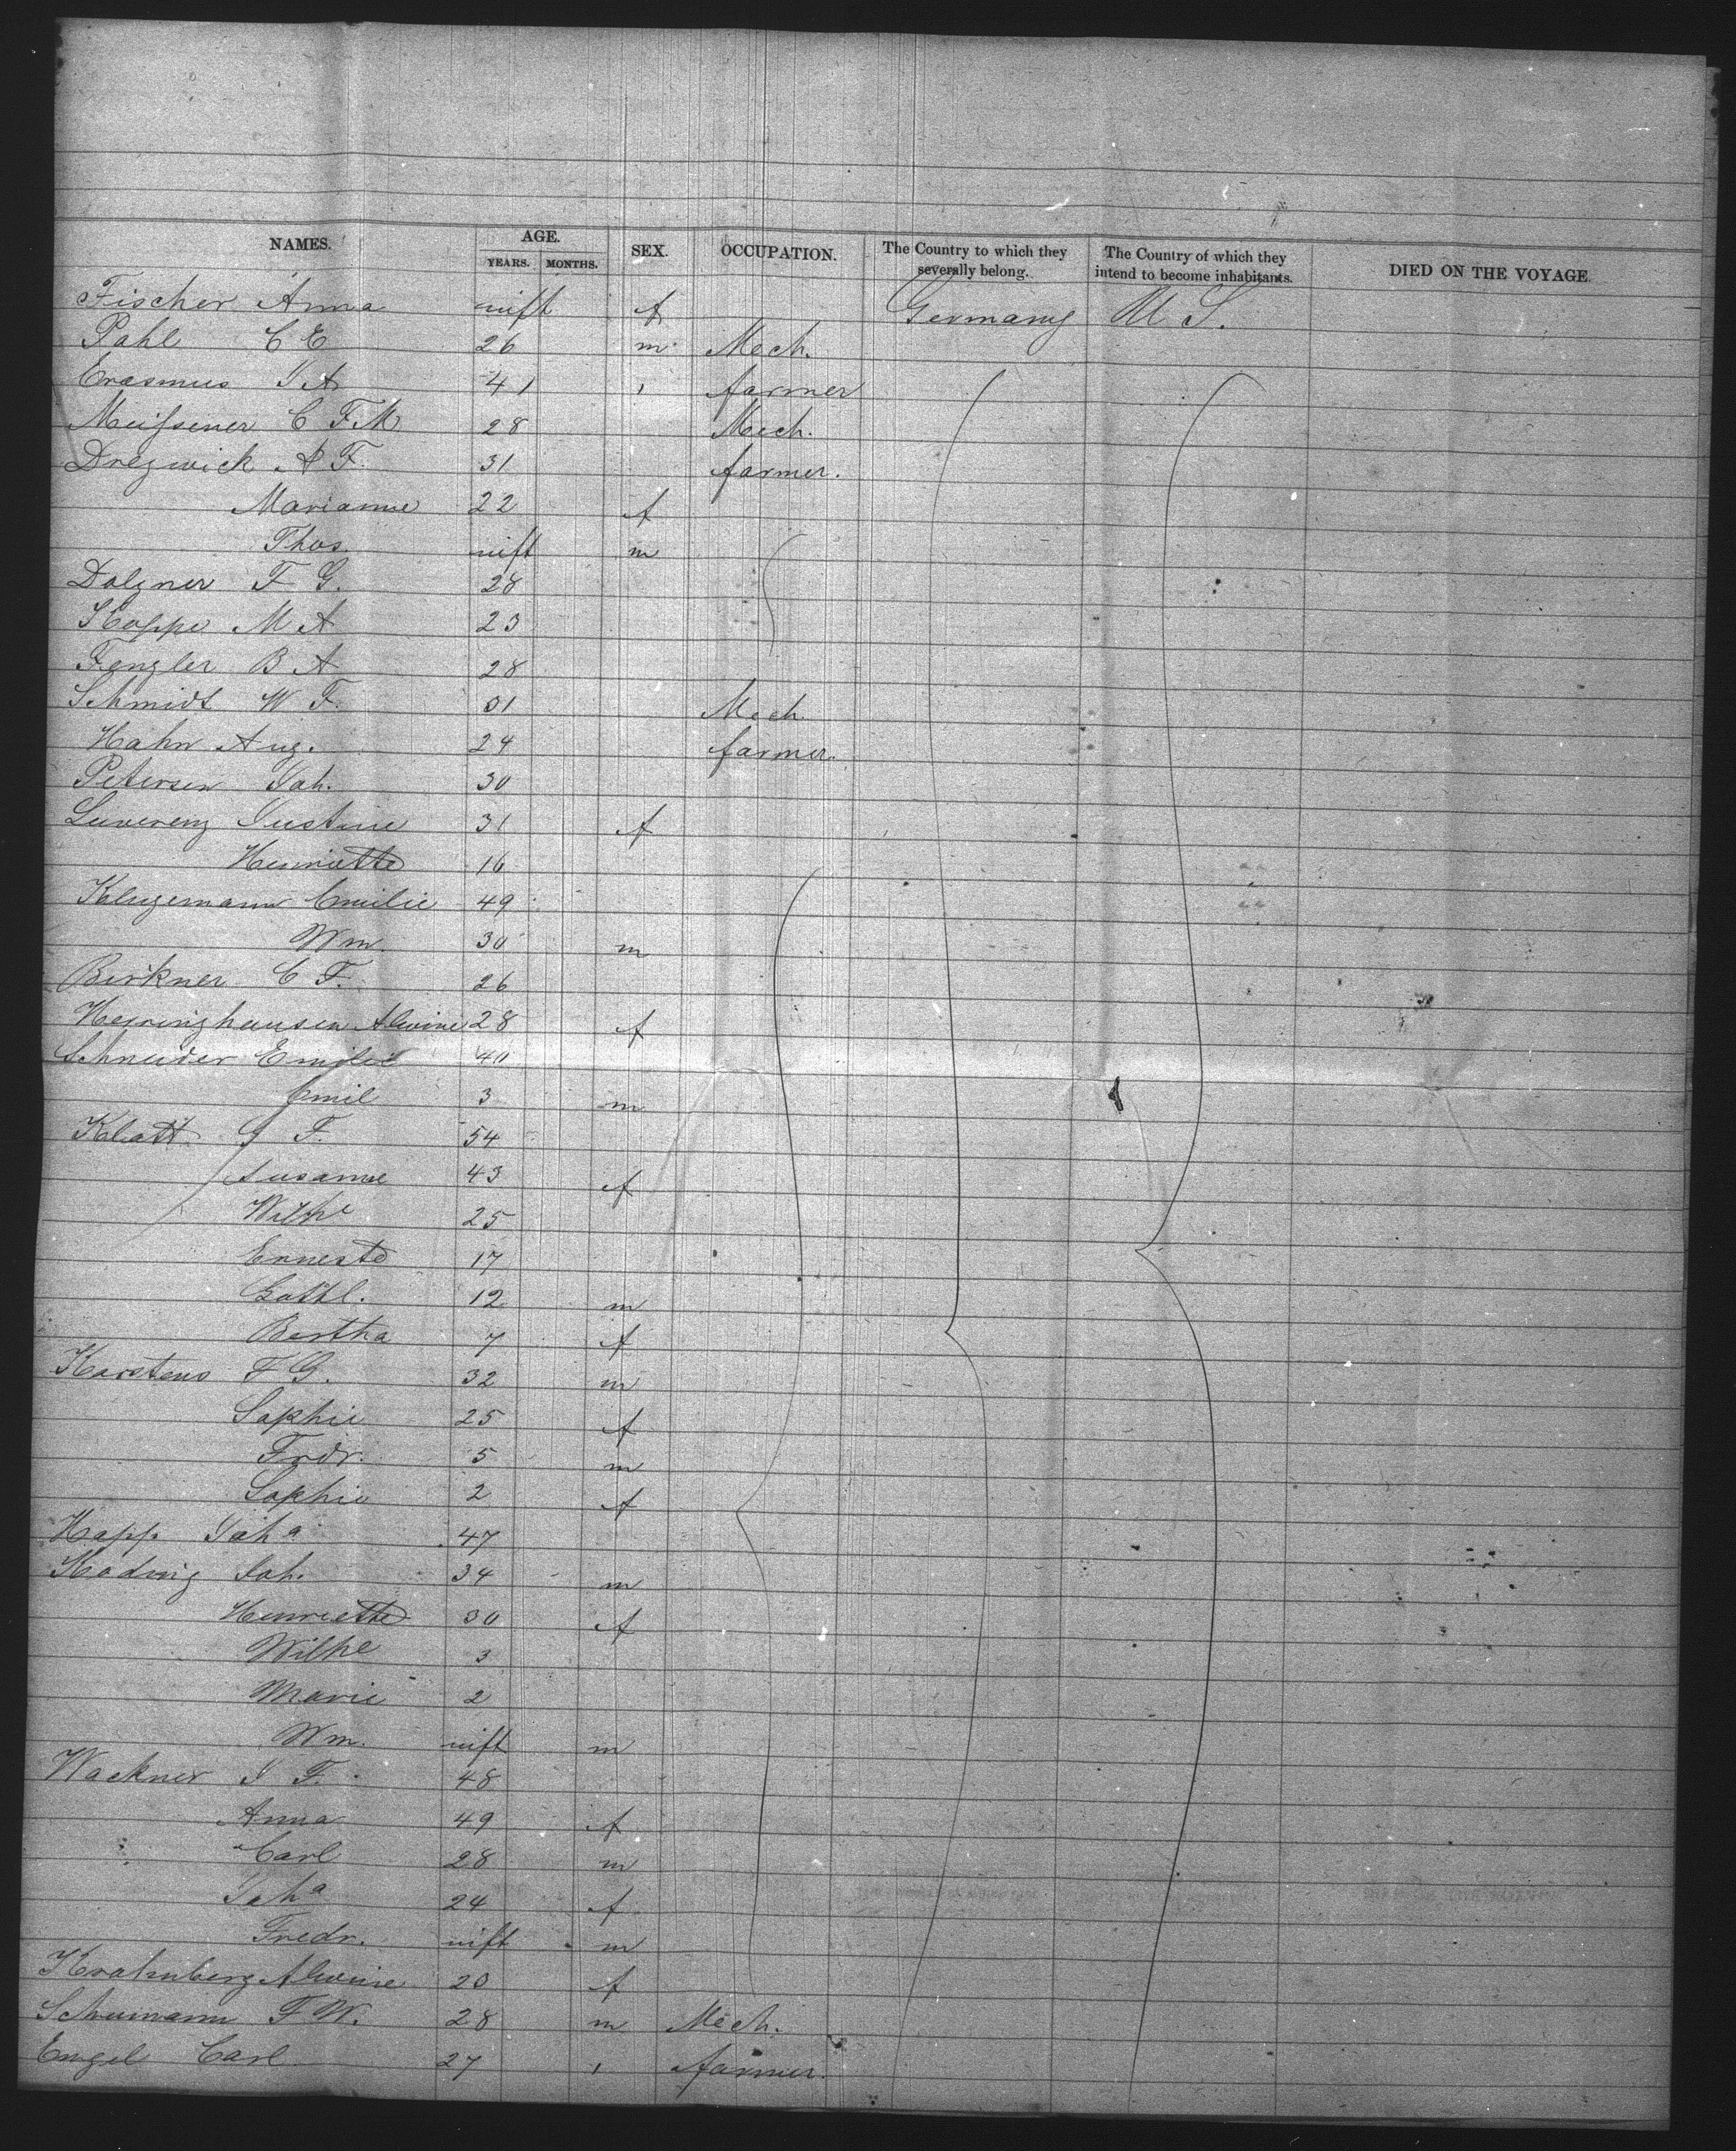 NAMES. AGE. SEX. OCCUPATION. The Country to which they severally belong. The Country of which they intend to become inhabitants. DIED ON THE VOYAGE.
YEARS. MONTHS.
Fischer Anna inft f Germany U S.
Pahl C E 26 m Mech.
Erasmus J A 41 " farmer
Meißener C F M 28 Mech.
Dregwick A F. 31 farmer.
Marianne 22 f
Thos. inft m
Dolzner F G. 28
Koppe M A 23
Fengler B A 28
Schmidt W F. 31 Mech.
Hahn Aug. 24 farmer.
Petersen Joh. 30
Luverenz Justine 31 f
Henriette 16
Klugemann Emilie 49
Wm. 30 m
Birkner C F. 26
Herringhausen Alwine 28 f
Schneider Emilie 40
Emil 3 m
Klatt J F. 54
Susanne 43 f
Wilhe 25
Erneste 17
Gottl. 12 m
Bertha 7 f
Karstens F G. 32 m
Sophie 25 f
Frdr. 5 m
Sophie 2 f
Happ Joha 47
Koding Joh. 34 m
Henriette 30 f
Wilhe 3
Marie 2
Wm. inft m
Wackner J F. 48
Anna 49 f
Carl 28 m
Joha 24 f
Fredr. inft m
Kratmberg Alwine 20 f
Schumann F W. 28 m Mech.
Engel Carl 27 " farmer.